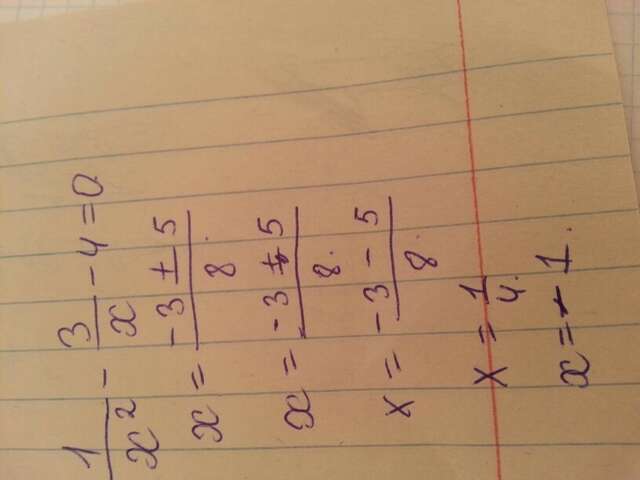 1/x² - 3/x - 4 = 0
x = (-3 ± 5)/8
x = (-3 + 5)/8
x = (-3 - 5)/8
x = 1/4
x = -1